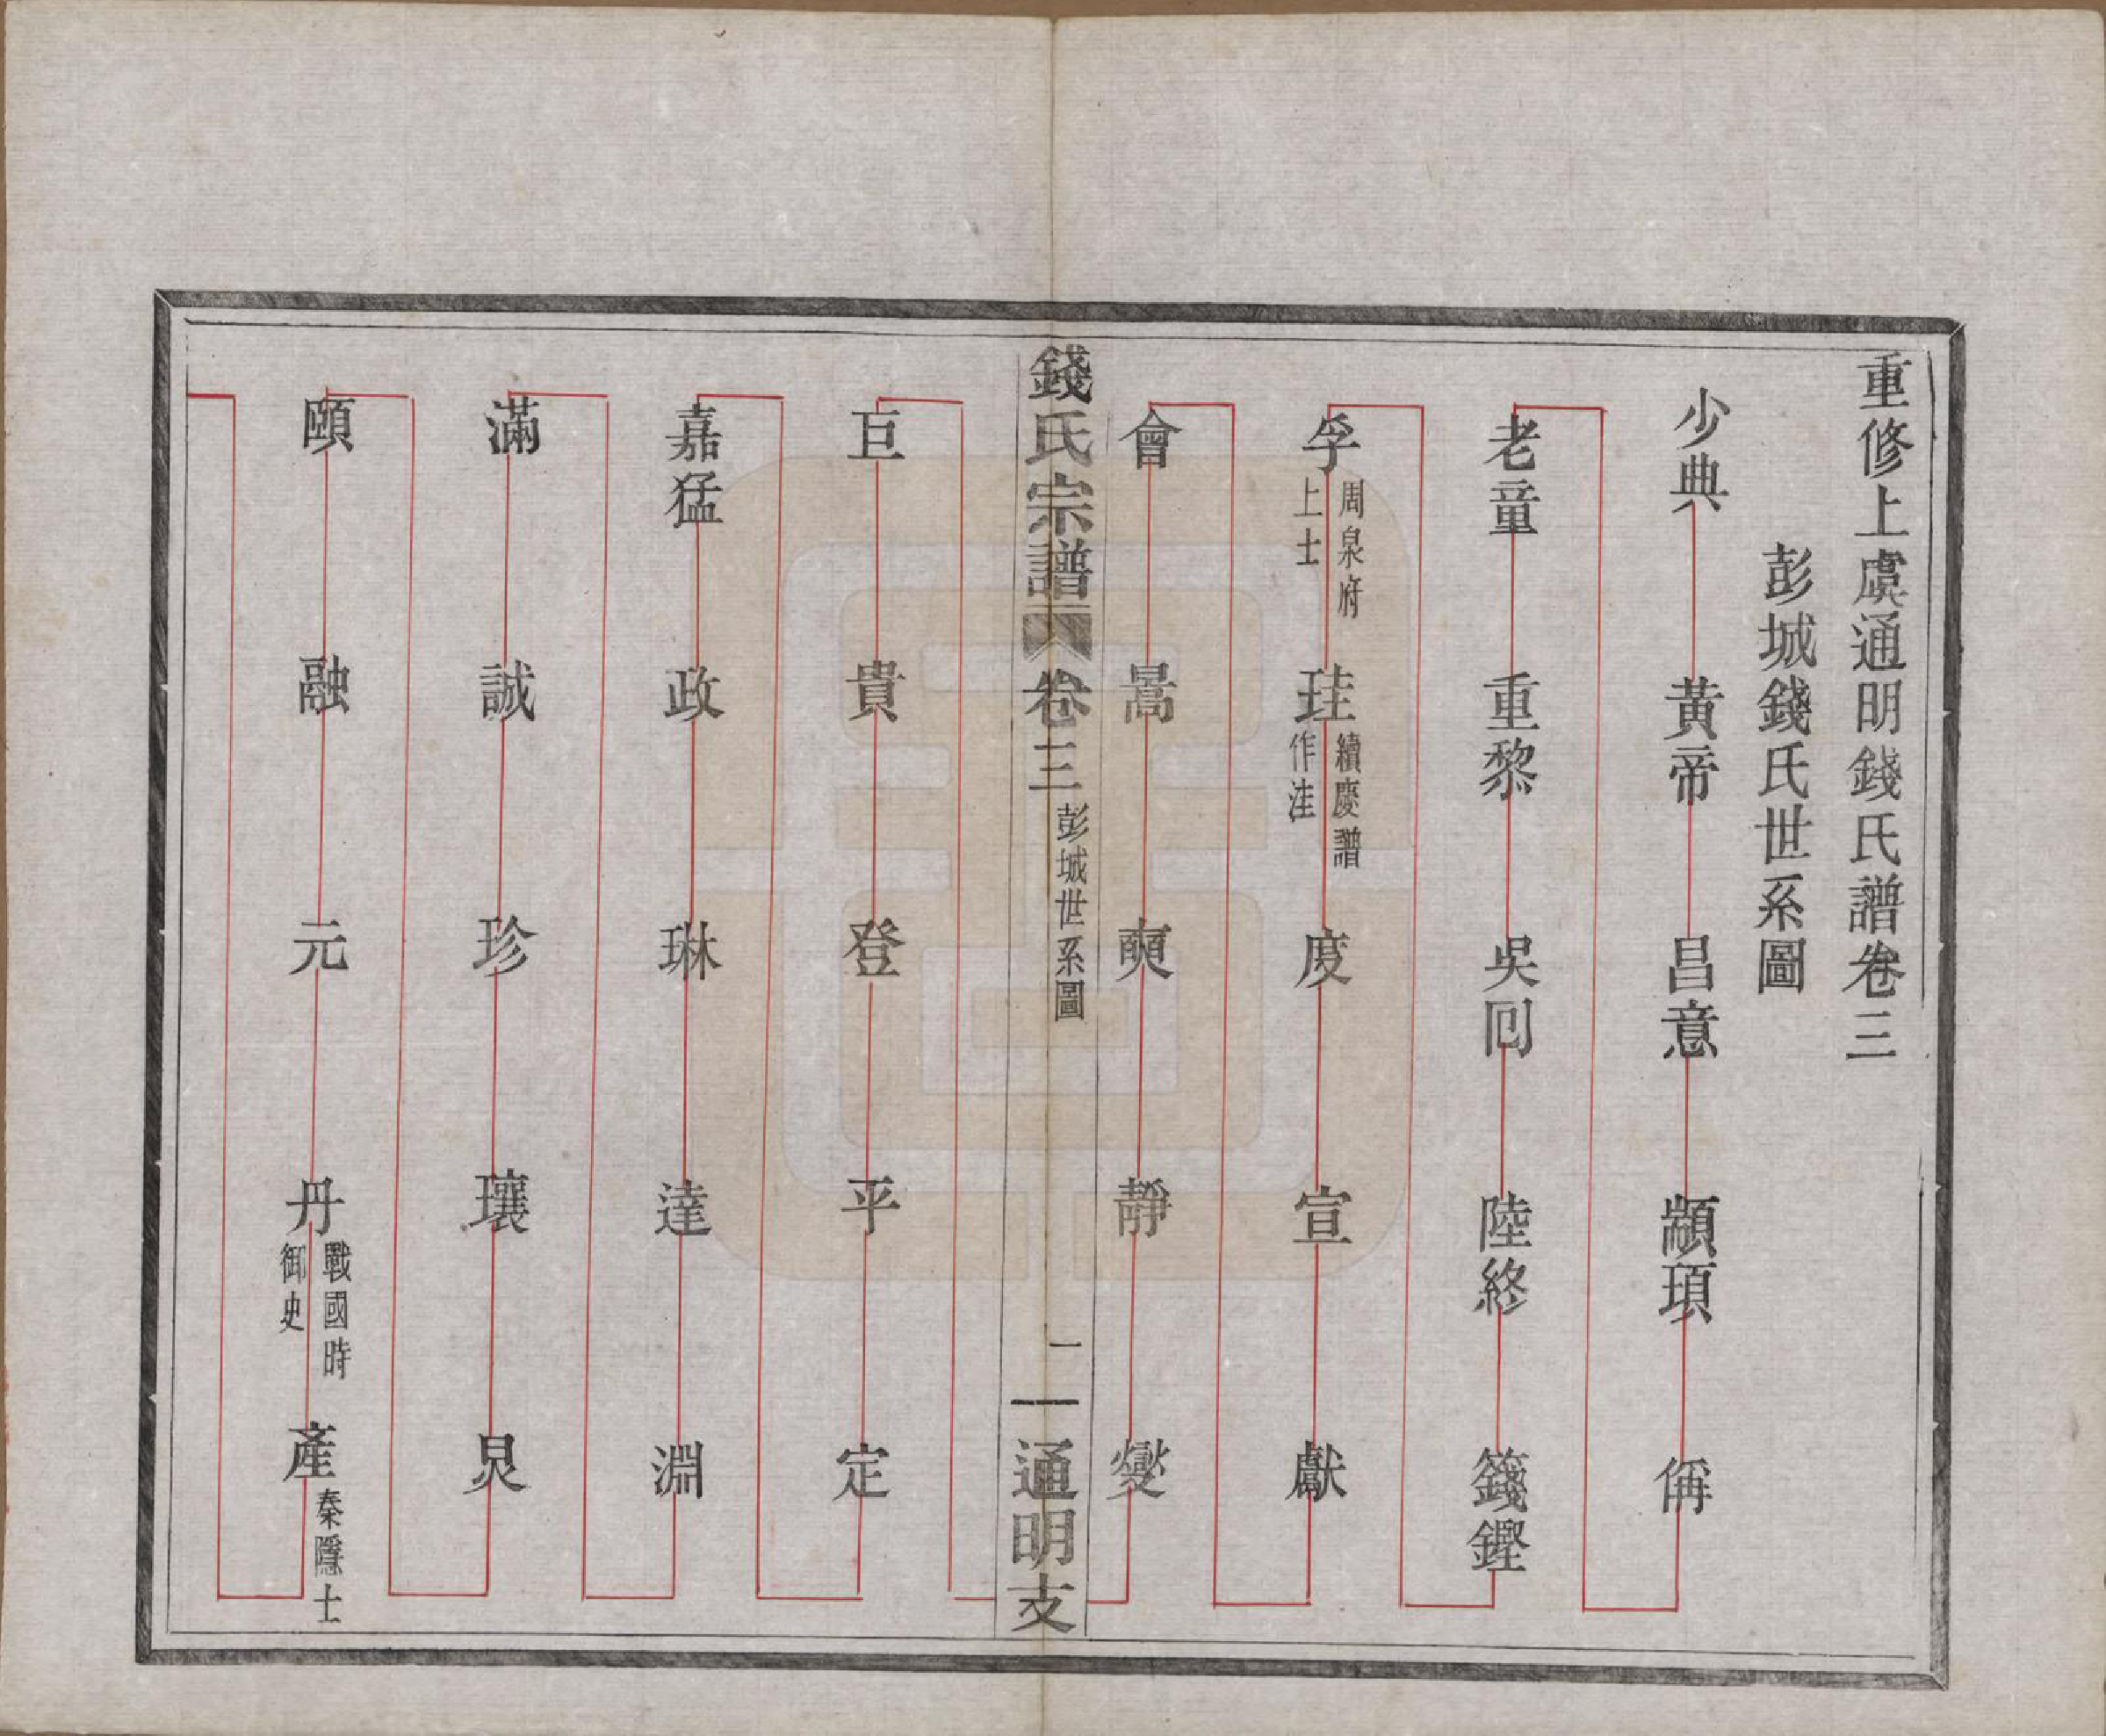 重修上虞通明錢氏譜卷三
彭城錢氏世系圖
少典 黃帝 昌意 顓頊 偁
老童 重黎 吳囘 陸終 籛鏗
孚 周泉府上士 珪 續慶譜作洼 度 宣 獻
會 暠 奭 靜 燮
錢氏宗譜 卷三 彭城世系圖 一 通明支
巨 貴 登 平 定
嘉猛 政 琳 達 淵
滿 誠 珍 瓖 炅
頤 融 元 丹 戰國時御史 產 秦隱士